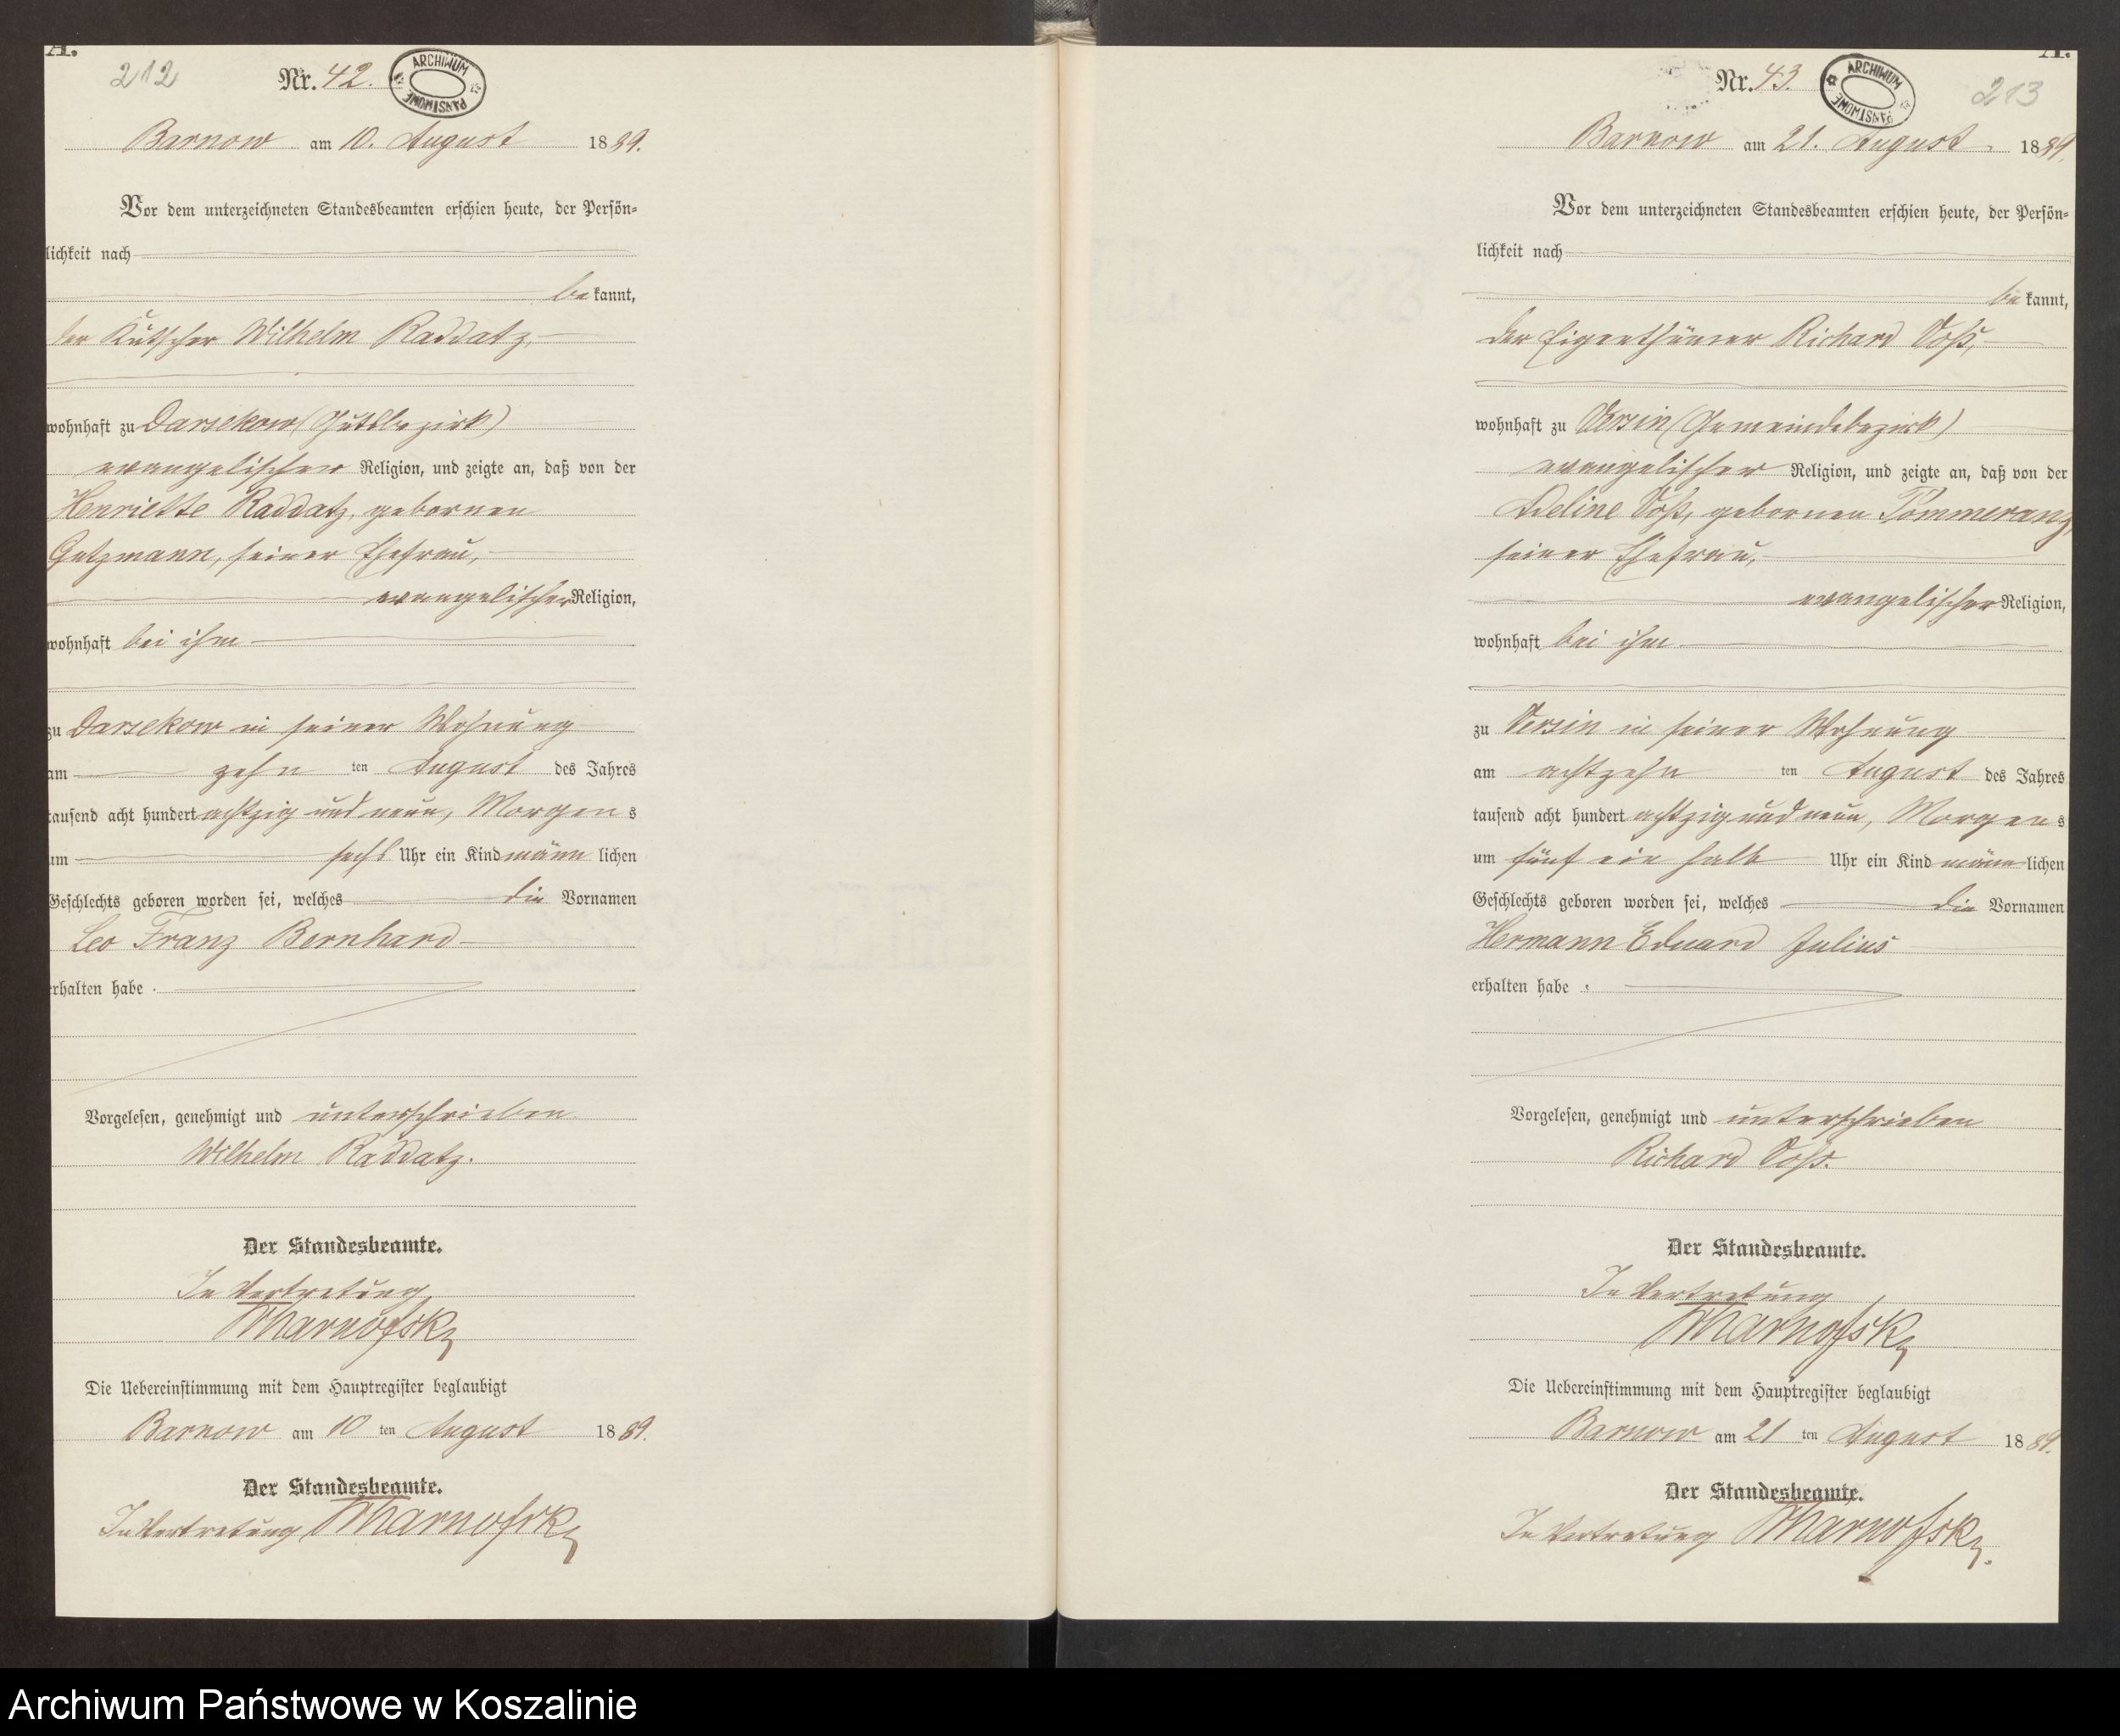 A.
212
Nr. 42.
ARCHIWUM PAŃSTWOWE
Barnow am 10. August 1889.
Vor dem unterzeichneten Standesbeamten erschien heute, der Persön-
lichkeit nach
bekannt,
der Kutscher Wilhelm Raddatz,
wohnhaft zu Darsekow (Gutsbezirk)
evangelischer Religion, und zeigte an, daß von der
Henriette Raddatz, gebornen
Gutzmann, seiner Ehefrau,
evangelischer Religion,
wohnhaft bei ihm
zu Darsekow in seiner Wohnung
am zehn ten August des Jahres
tausend acht hundert achtzig und neun, Morgens
um sechs Uhr ein Kind männlichen
Geschlechts geboren worden sei, welches die Vornamen
Leo Franz Bernhard
erhalten habe.
Vorgelesen, genehmigt und unterschrieben
Wilhelm Raddatz.
Der Standesbeamte.
In Vertretung
Die Uebereinstimmung mit dem Hauptregister beglaubigt
Barnow am 10 ten August 1889.
Der Standesbeamte.
In Vertretung
A.
Nr. 43.
ARCHIWUM PAŃSTWOWE
213
Barnow am 21. August 1889.
Vor dem unterzeichneten Standesbeamten erschien heute, der Persön-
lichkeit nach
bekannt,
der Eigenthümer Richard Voß,
wohnhaft zu Versin (Gemeindebezirk)
evangelischer Religion, und zeigte an, daß von der
Adeline Voß, gebornen Pommeranz
seiner Ehefrau,
evangelischer Religion,
wohnhaft bei ihm
zu Versin in seiner Wohnung
am achtzehn ten August des Jahres
tausend acht hundert achtzig und neun, Morgens
um fünf ein halb Uhr ein Kind männlichen
Geschlechts geboren worden sei, welches die Vornamen
Hermann Eduard Julius
erhalten habe.
Vorgelesen, genehmigt und unterschrieben
Richard Voß.
Der Standesbeamte.
In Vertretung
Die Uebereinstimmung mit dem Hauptregister beglaubigt
Barnow am 21 ten August 1889.
Der Standesbeamte.
In Vertretung
Archiwum Państwowe w Koszalinie